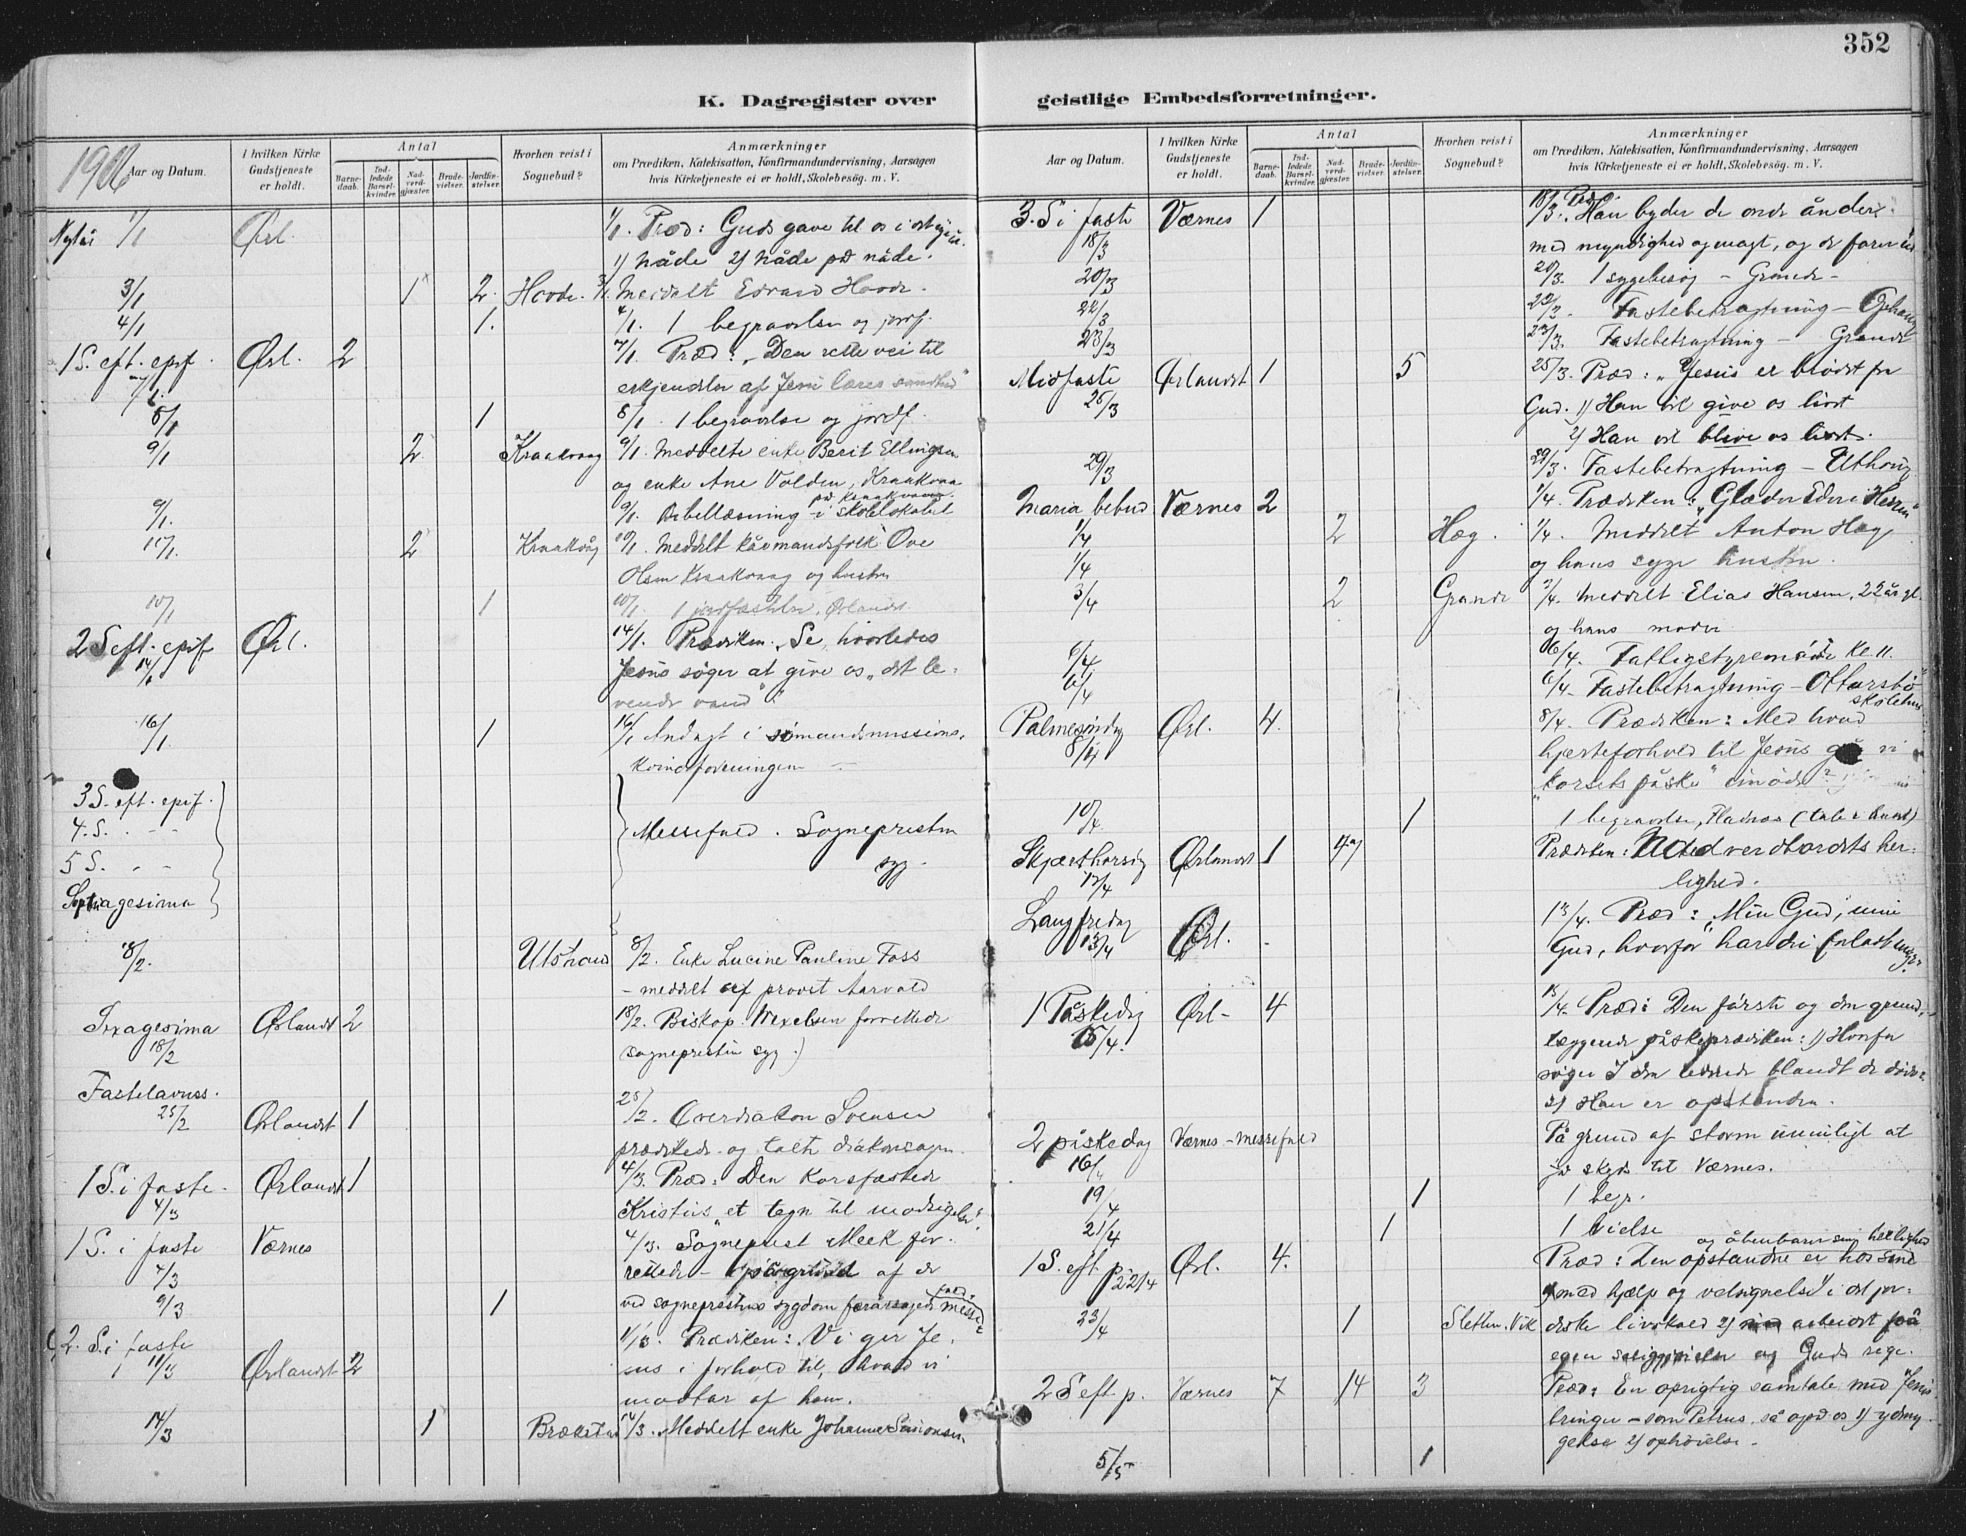 352
K. Dagregister over
1906 Aar og Datum.
I hvilken Kirke Gudstjeneste er holdt.
Antal
Barnedaab.
Indledede Barselkvinder.
Nadverdgjæster.
Brudevielser.
Jordfæstelser.
Hvorhen reist i Sognebud?
Anmærkninger
om Prædiken, Katekisation, Konfirmandundervisning, Aarsagen
hvis Kirketjeneste ei er holdt, Skolebesøg. m. V.
Nytår 1/1 Ørl. 1/1. Præd: Guds gave til os i det nye år.
1) Nåde 2) Nåde på nåde.
3/1 1 2. Hovde. 3/1. Meddelt Edvard Hovde.
4/1 1. 4/1. 1 begravelse og jordf.
1 S. eft. epif. Ørl. 2 7/1. Præd: "Den rette vei til
7/1 erkjendelse af Jesu læres sandhed"
8/1 1 8/1. 1 begravelse og jordf.
9/1 2 Kraakvaag 9/1. Meddelte enke Berit Ellingsen
og enke Ane Volden, Kraakvaa
på Kraakvaag
9/1. 9/1. Bibellæsning i skolelokalet
10/1. 2 Kraakvåg 10/1. Meddelt kårmandsfolk Ove
Olsen Kraakvaag og hustru
10/1 1 10/1. 1 jordfæstelse, Ørlandet.
2 S eft. epif Ørl. 14/1. Prædiken. "Se, hvorledes
14/1 Jesus søger at give os "det le-
vende vand"!
16/1. 1 16/1 Andagt i sømandsmissions-
kvindeforeningen —
3 S. eft. epif.
4. S. - -
5 S. - -
Septuagesima
Messefald. Sognepresten
syg.
8/2. Utstrand 8/2. Enke Lucine Pauline Foss
- meddelt af provst Aarvold
Sexagesima Ørlandet 2 18/2. Biskop Wexelsen forrettede
18/2 sognepresten syg.)
Fastelavnss. 25/2. Overdiakon Svensen
25/2 Ørlandet 1 prædikede og talte diakonsagen.
1 S. i faste. Ørlandet 1 4/3. Præd: Den korsfæstede
4/3 Kristus "et tegn til modsigelse".
1 S. i faste Værnes 4/3. Sogneprest Meek for-
4/3 rettede - på grund af de
fald.
9/3 1 ved sogneprestens sygdom forårsagede messe
2. S. i faste 11/3. Prædiken: Vi gir Je-
11/3 Ørlandet 2 sus i forhold til, hvad vi
modtar af ham.
14/3 1 Brækstad 14/3. Meddelt enke Johanna Simonsen.
geistlige Embedsforretninger.
Aar og Datum.
I hvilken Kirke Gudstjeneste er holdt.
Antal
Barnedaab.
Indledede Barselkvinder.
Nadverdgjæster.
Brudevielser.
Jordfæstelser.
Hvorhen reist i Sognebud?
Anmærkninger
om Prædiken, Katekisation, Konfirmandundervisning, Aarsagen
hvis Kirketjeneste ei er holdt, Skolebesøg. m. V.
3. S i faste Værnes 1 18/3. Præd. "Han byder de onde ånder
18/3 med myndighed og magt, og de farer ud
20/3 20/3. 1 sygebesøg - Grande -
22/3 22/3. Fastebetragtning - Ophaug
23/3 23/3. Fastebetragtning - Grande
Midfaste Ørlandet 1 5 25/3. Præd: "Jesus er brødet fra
25/3 Gud. 1) Han vil give os livet
2) Han vil blive os livet.
29/3 29/3. Fastebetragtning - Uthaug
Maria bebud Værnes 2 1/4. Prædiken: "Glæder Eder i Herren"
1/4 2 Hæg. 1/4. Meddelt Anton Hæg
1/4 og hans syge hustru.
3/4 2 Grande 3/4. Meddelt Elias Hansen, 22 år gl.
og hans moder
6/4 6/4. Fattigstyremøde kl. 11.
6/4 6/4. Fastebetragtning - Ottarsbo
skolehus
Palmesøndag Ørl. 4. 8/4. Prædiken: Med hvad
8/4 hjerteforhold til Jesus går vi
"korsets påske" imøde?
10/4 1 1 begravelse, Fladnes (tale i huset)
Skjærthorsdag Ørlandet 1 47 Prædiken: Nadverdbordets her-
12/4 lighed.
Langfredag 13/4. Præd: "Min Gud, min
13/4 Ørl. Gud, hvorfor har du forladt mig?"
1 Påskedag Ørl- 4 15/4. Præd: Den første og den grund-
15/4. læggende påskeprædiken: 1) Hvorfor
søger I den levende blandt de døde?
2) Han er opstanden.
2 påskedag Værnes - messefald På grund af storm umuligt at
16/4 få skyds til Værnes.
19/4 1 1 begr.
21/4 1 1 vielse
og åbenbarer sin herlighed
1 S. eft p. 22/4 Ørl. 4. Præd: Den opstandne er hos sine
med hjælp og velsignelse 1) i det jor-
23/4 1 Sletten. Vik diske livskald 2) arbeidet på
egen saliggjørelse og Guds rige.
2 S eft p. Værnes 7 14 3 Præd: En oprigtig samtale med Jesus
bringer - som Petrus, så også os 1) ydmy-
gelse 2) ophøielse.
5/5 1